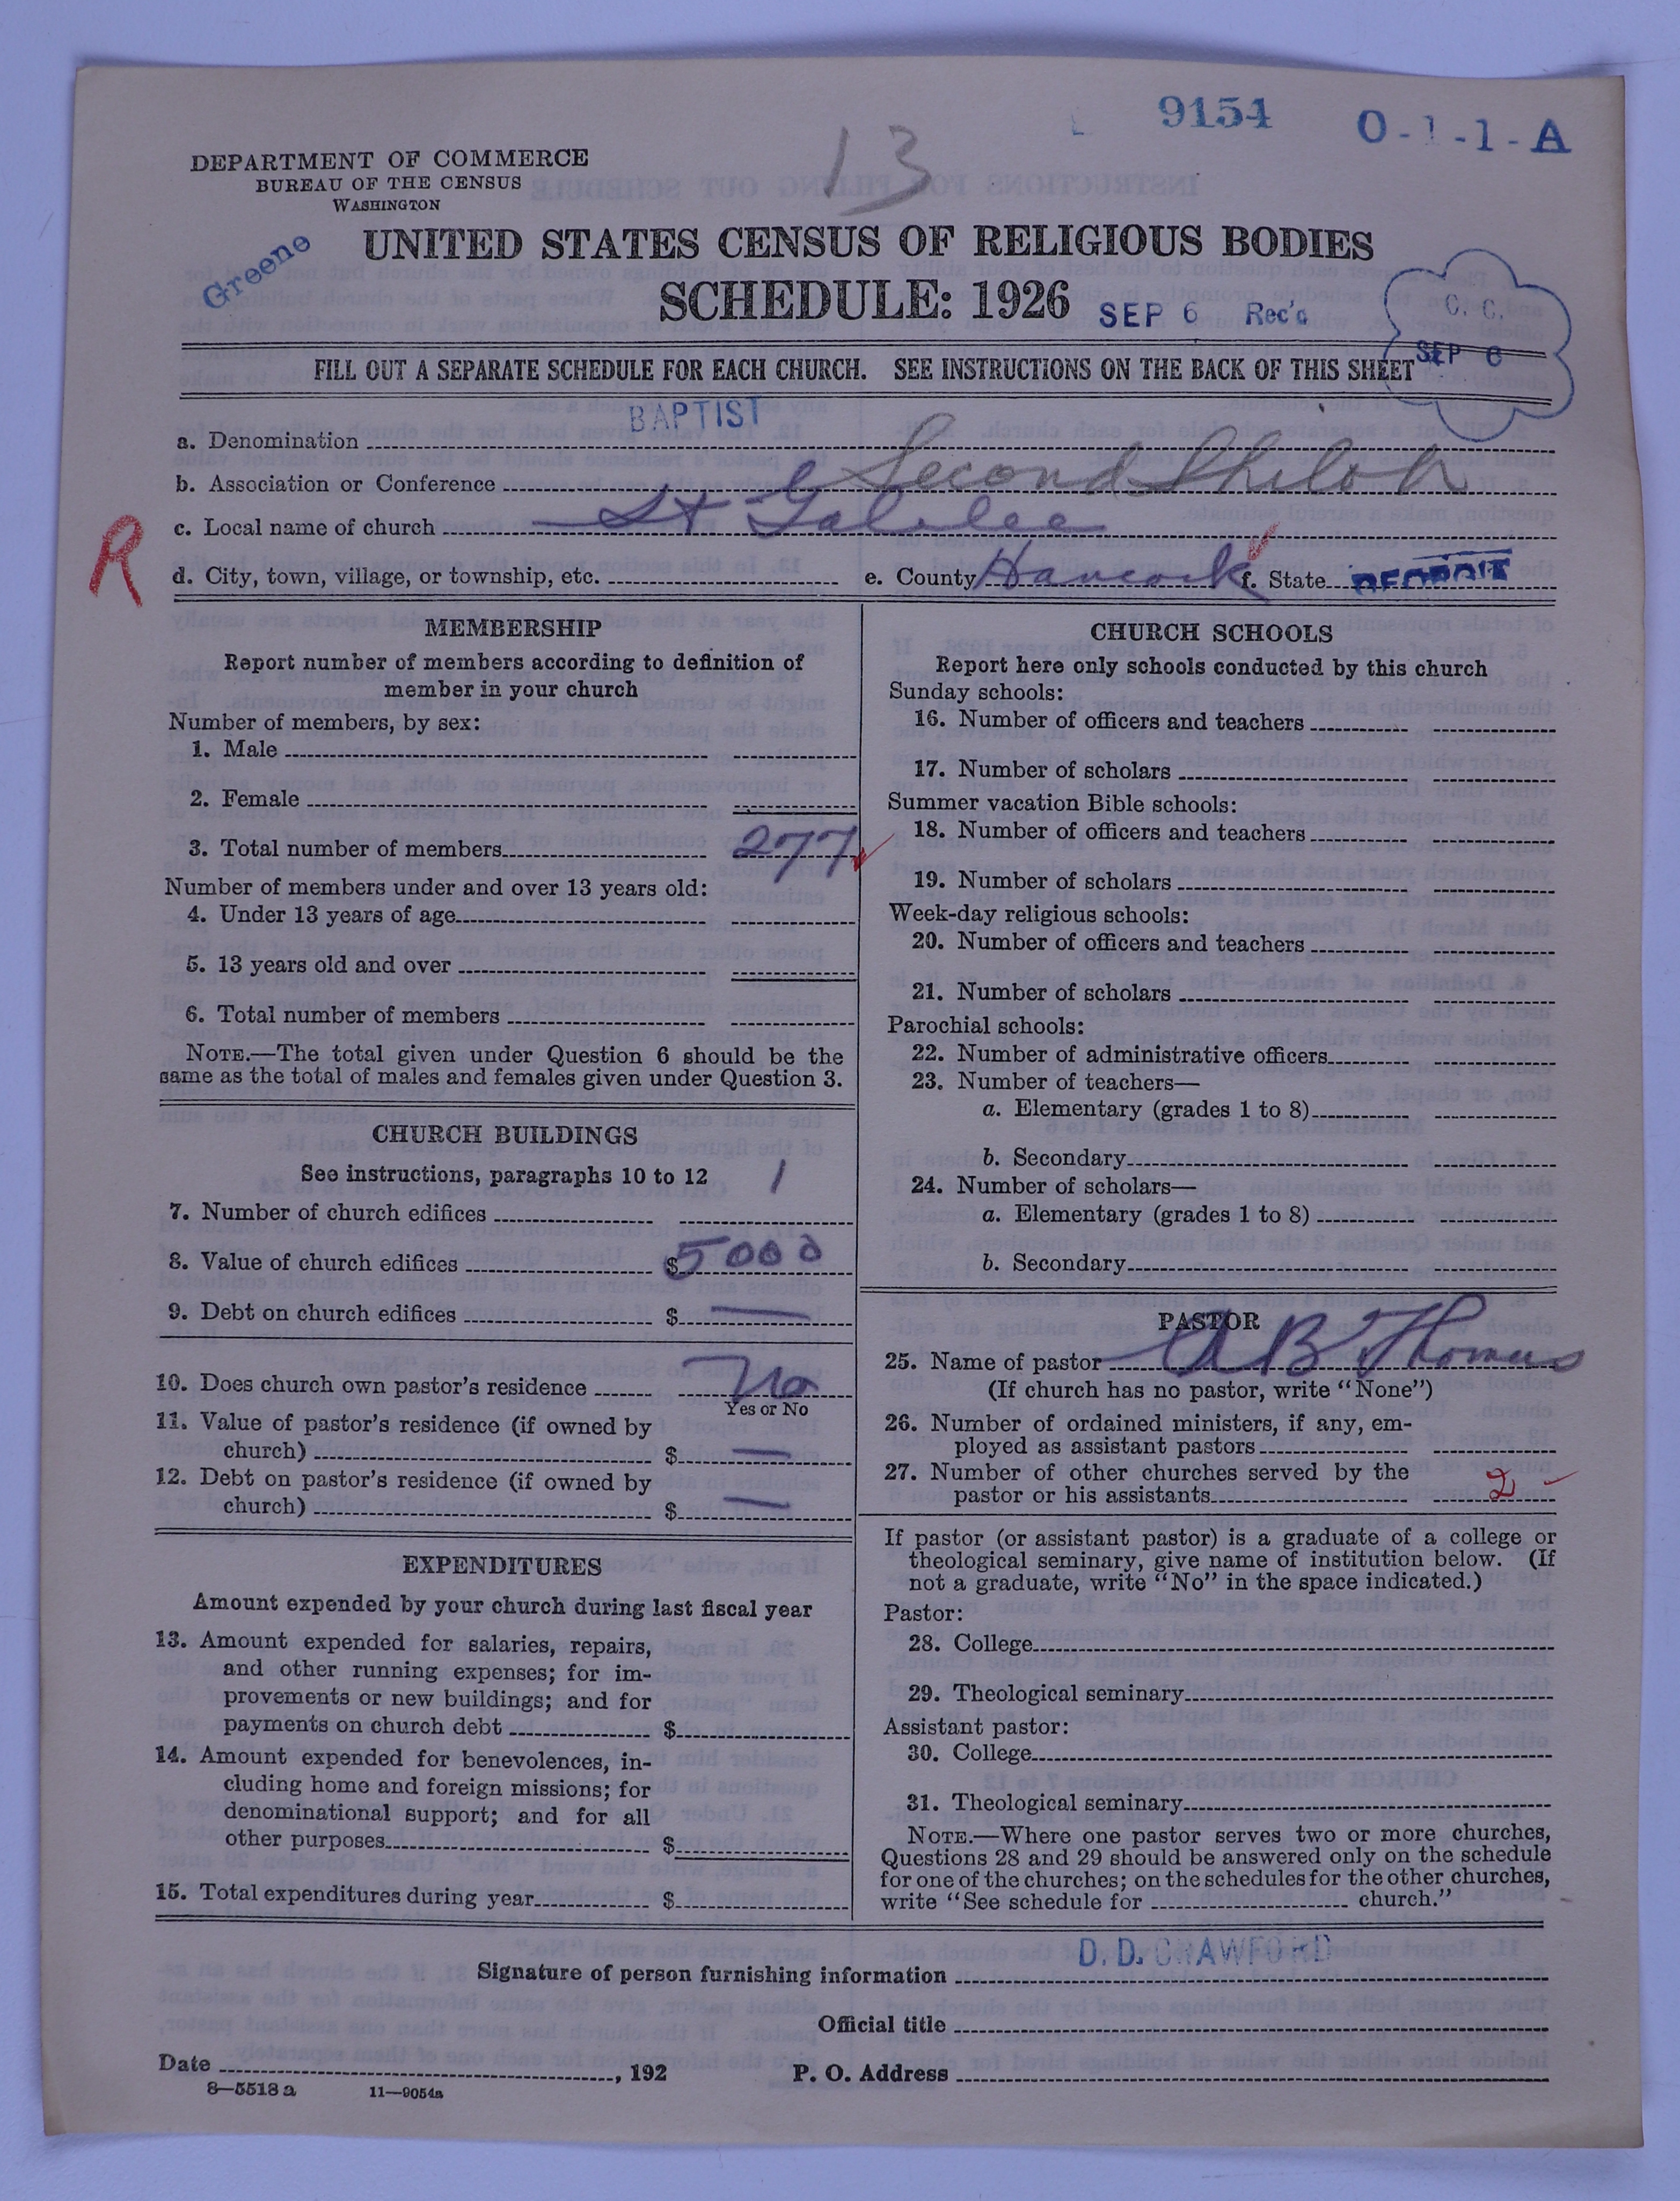 9154 O-1-1-A
13
DEPARTMENT OF COMMERCE
BUREAU OF THE CENSUS
WASHINGTON
Greene
UNITED STATES CENSUS OF RELIGIOUS BODIES
SCHEDULE: 1926
SEP 6 Rec'd
C. C.
SEP 6
FILL OUT A SEPARATE SCHEDULE FOR EACH CHURCH. SEE INSTRUCTIONS ON THE BACK OF THIS SHEET
a. Denomination BAPTIST
b. Association or Conference Second Shiloh
c. Local name of church St Galilee
R
d. City, town, village, or township, etc. e. County Hancock f. State
MEMBERSHIP
Report number of members according to definition of
member in your church
Number of members, by sex:
1. Male
2. Female
3. Total number of members 277
Number of members under and over 13 years old:
4. Under 13 years of age
5. 13 years old and over
6. Total number of members
NOTE.—The total given under Question 6 should be the
same as the total of males and females given under Question 3.
CHURCH BUILDINGS
See instructions, paragraphs 10 to 12
7. Number of church edifices 1
8. Value of church edifices $5000
9. Debt on church edifices $ —
10. Does church own pastor's residence No
Yes or No
11. Value of pastor's residence (if owned by
church) $ —
12. Debt on pastor's residence (if owned by
church) $ —
EXPENDITURES
Amount expended by your church during last fiscal year
13. Amount expended for salaries, repairs,
and other running expenses; for im-
provements or new buildings; and for
payments on church debt $
14. Amount expended for benevolences, in-
cluding home and foreign missions; for
denominational support; and for all
other purposes $
15. Total expenditures during year $
CHURCH SCHOOLS
Report here only schools conducted by this church
Sunday schools:
16. Number of officers and teachers
17. Number of scholars
Summer vacation Bible schools:
18. Number of officers and teachers
19. Number of scholars
Week-day religious schools:
20. Number of officers and teachers
21. Number of scholars
Parochial schools:
22. Number of administrative officers
23. Number of teachers—
a. Elementary (grades 1 to 8)
b. Secondary
24. Number of scholars—
a. Elementary (grades 1 to 8)
b. Secondary
PASTOR
25. Name of pastor A B Thomas
(If church has no pastor, write "None")
26. Number of ordained ministers, if any, em-
ployed as assistant pastors
27. Number of other churches served by the
pastor or his assistants 2
If pastor (or assistant pastor) is a graduate of a college or
theological seminary, give name of institution below. (If
not a graduate, write "No" in the space indicated.)
Pastor:
28. College
29. Theological seminary
Assistant pastor:
30. College
31. Theological seminary
NOTE.—Where one pastor serves two or more churches,
Questions 28 and 29 should be answered only on the schedule
for one of the churches; on the schedules for the other churches,
write "See schedule for church."
Signature of person furnishing information D. D. CRAWFORD
Official title
Date , 192 P. O. Address
8—5518 a 11—9054a